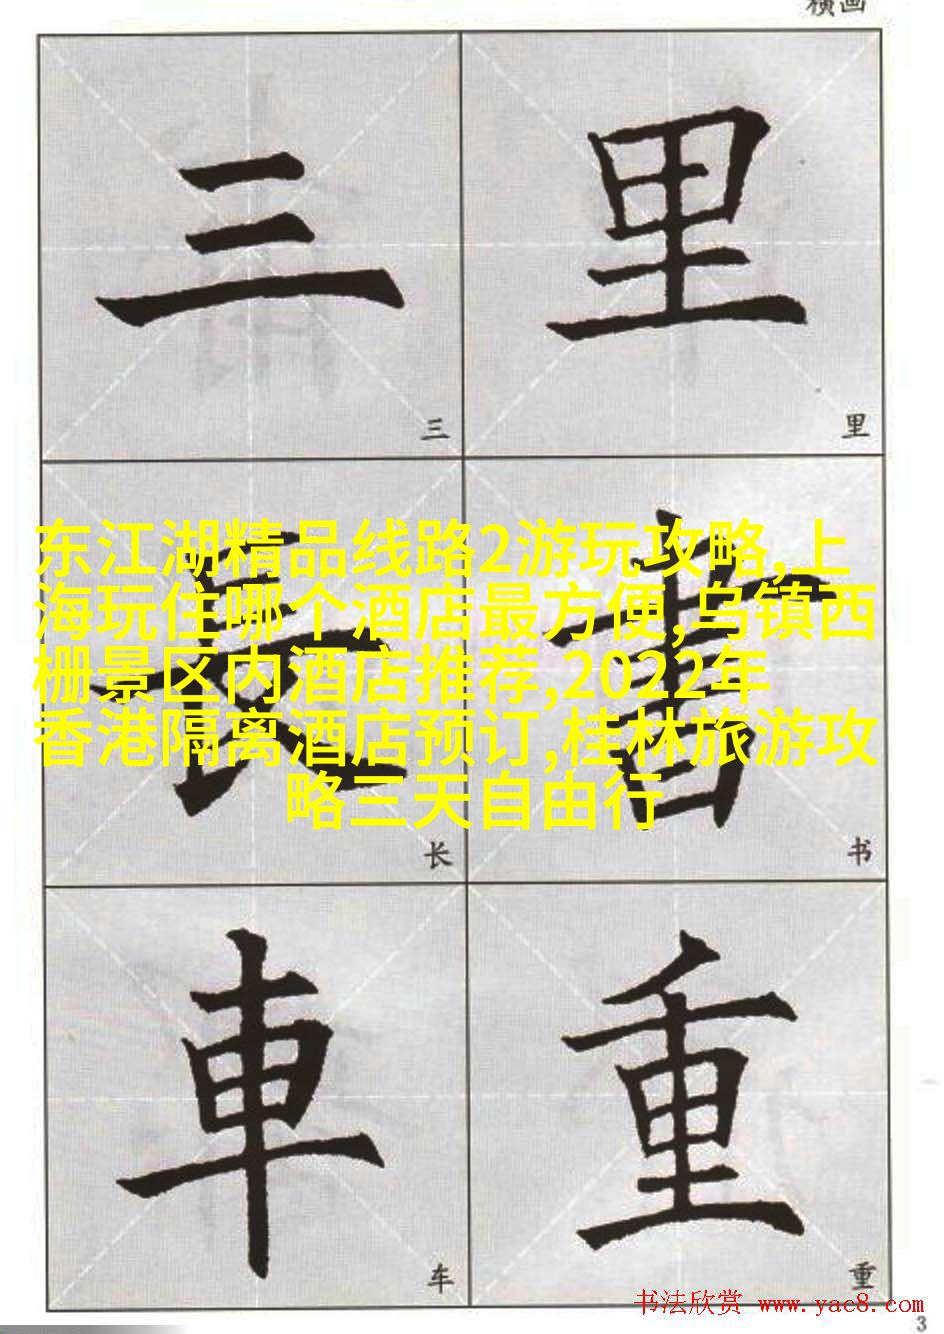 横画
三 里
三 里
东江湖精品线路2游玩攻略,上
海玩住哪个酒店最方便,乌镇西
栅景区内酒店推荐,2022年
香港隔离酒店预订,桂林旅游攻
略三天自由行
長 書
长 书
車 重
车 重
书法欣赏 www.yac8.com
3